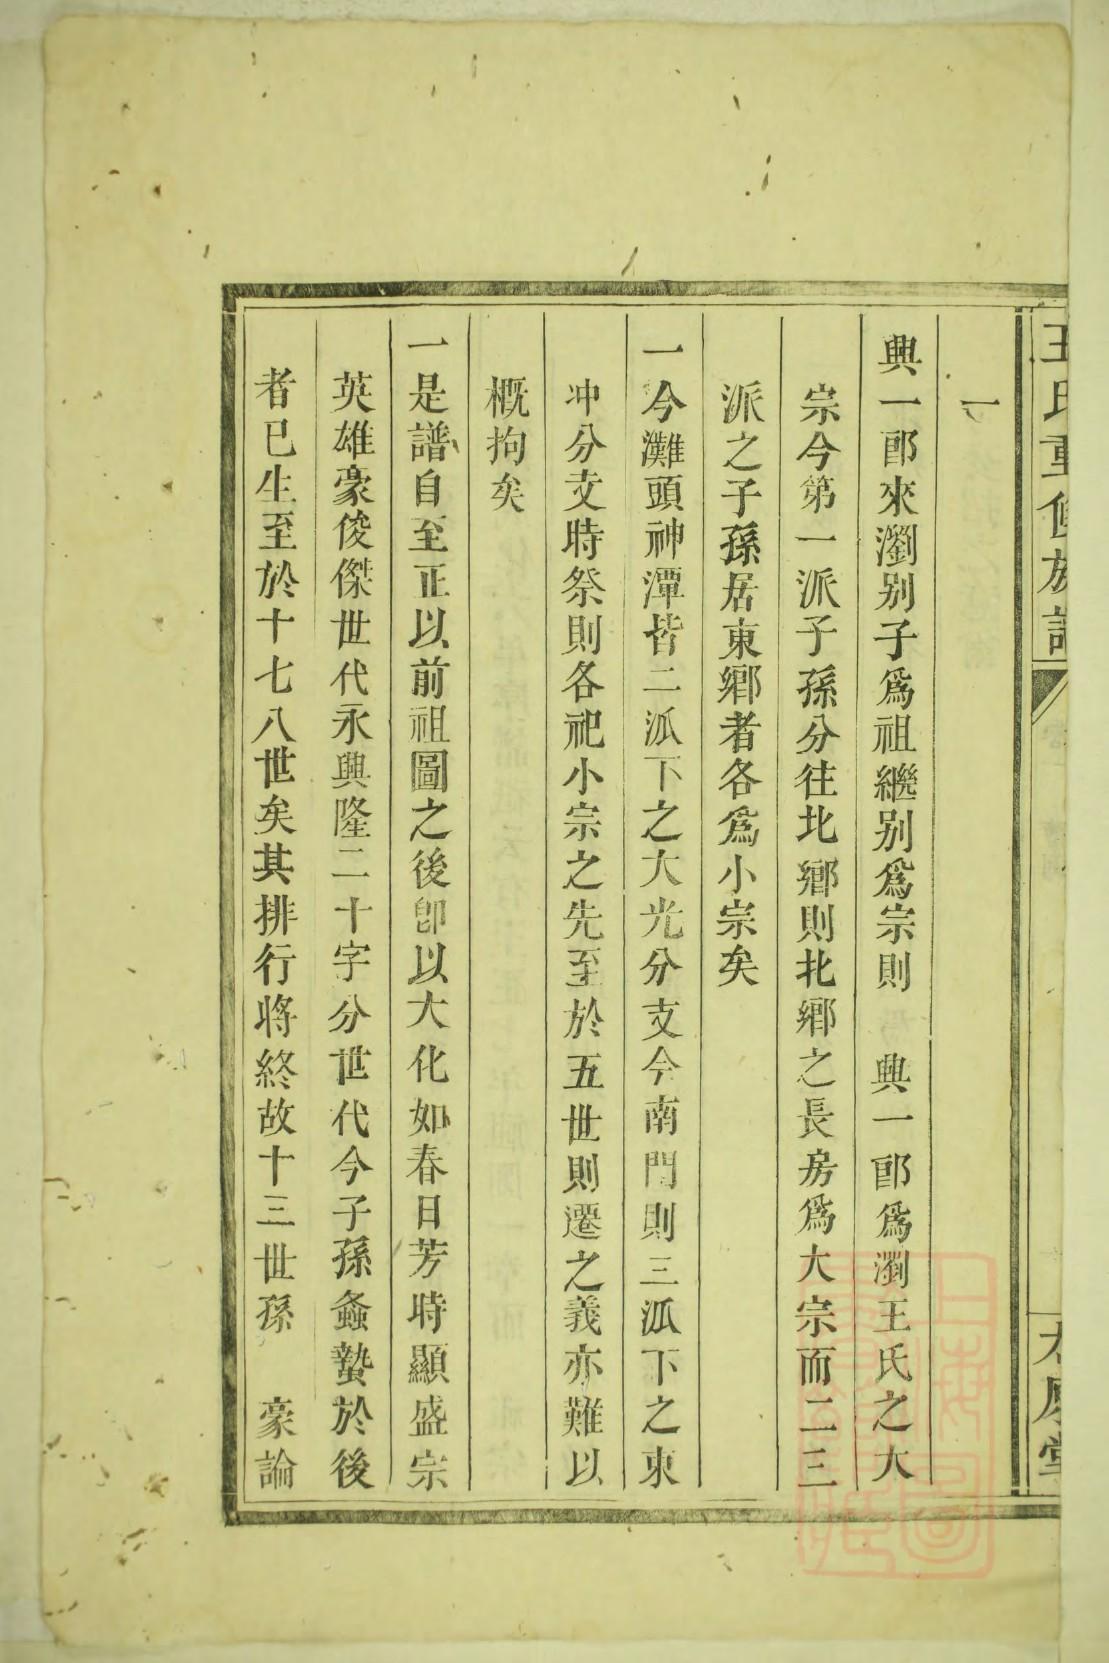 王氏重修族譜
太原堂
一
興一郎來瀏别子爲祖繼别爲宗則 興一郎爲瀏王氏之大
宗今第一派子孫分往北鄉則北鄉之長房爲大宗而二三
派之子孫居東鄉者各爲小宗矣
一今灘頭神潭皆二派下之大光分支今南門則三派下之東
冲分支時祭則各祀小宗之先至於五世則遷之義亦難以
概拘矣
一是譜自至正以前祖圖之後卽以大化如春日芳時顯盛宗
英雄豪俊傑世代永興隆二十字分世代今子孫螽蟄於後
者已生至於十七八世矣其排行將終故十三世孫 豪論